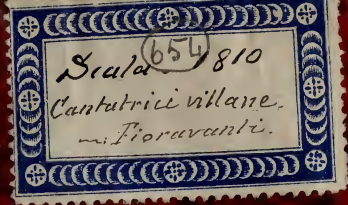 Scala 654 1810
Cantatrici villane.
m: Fioravanti.